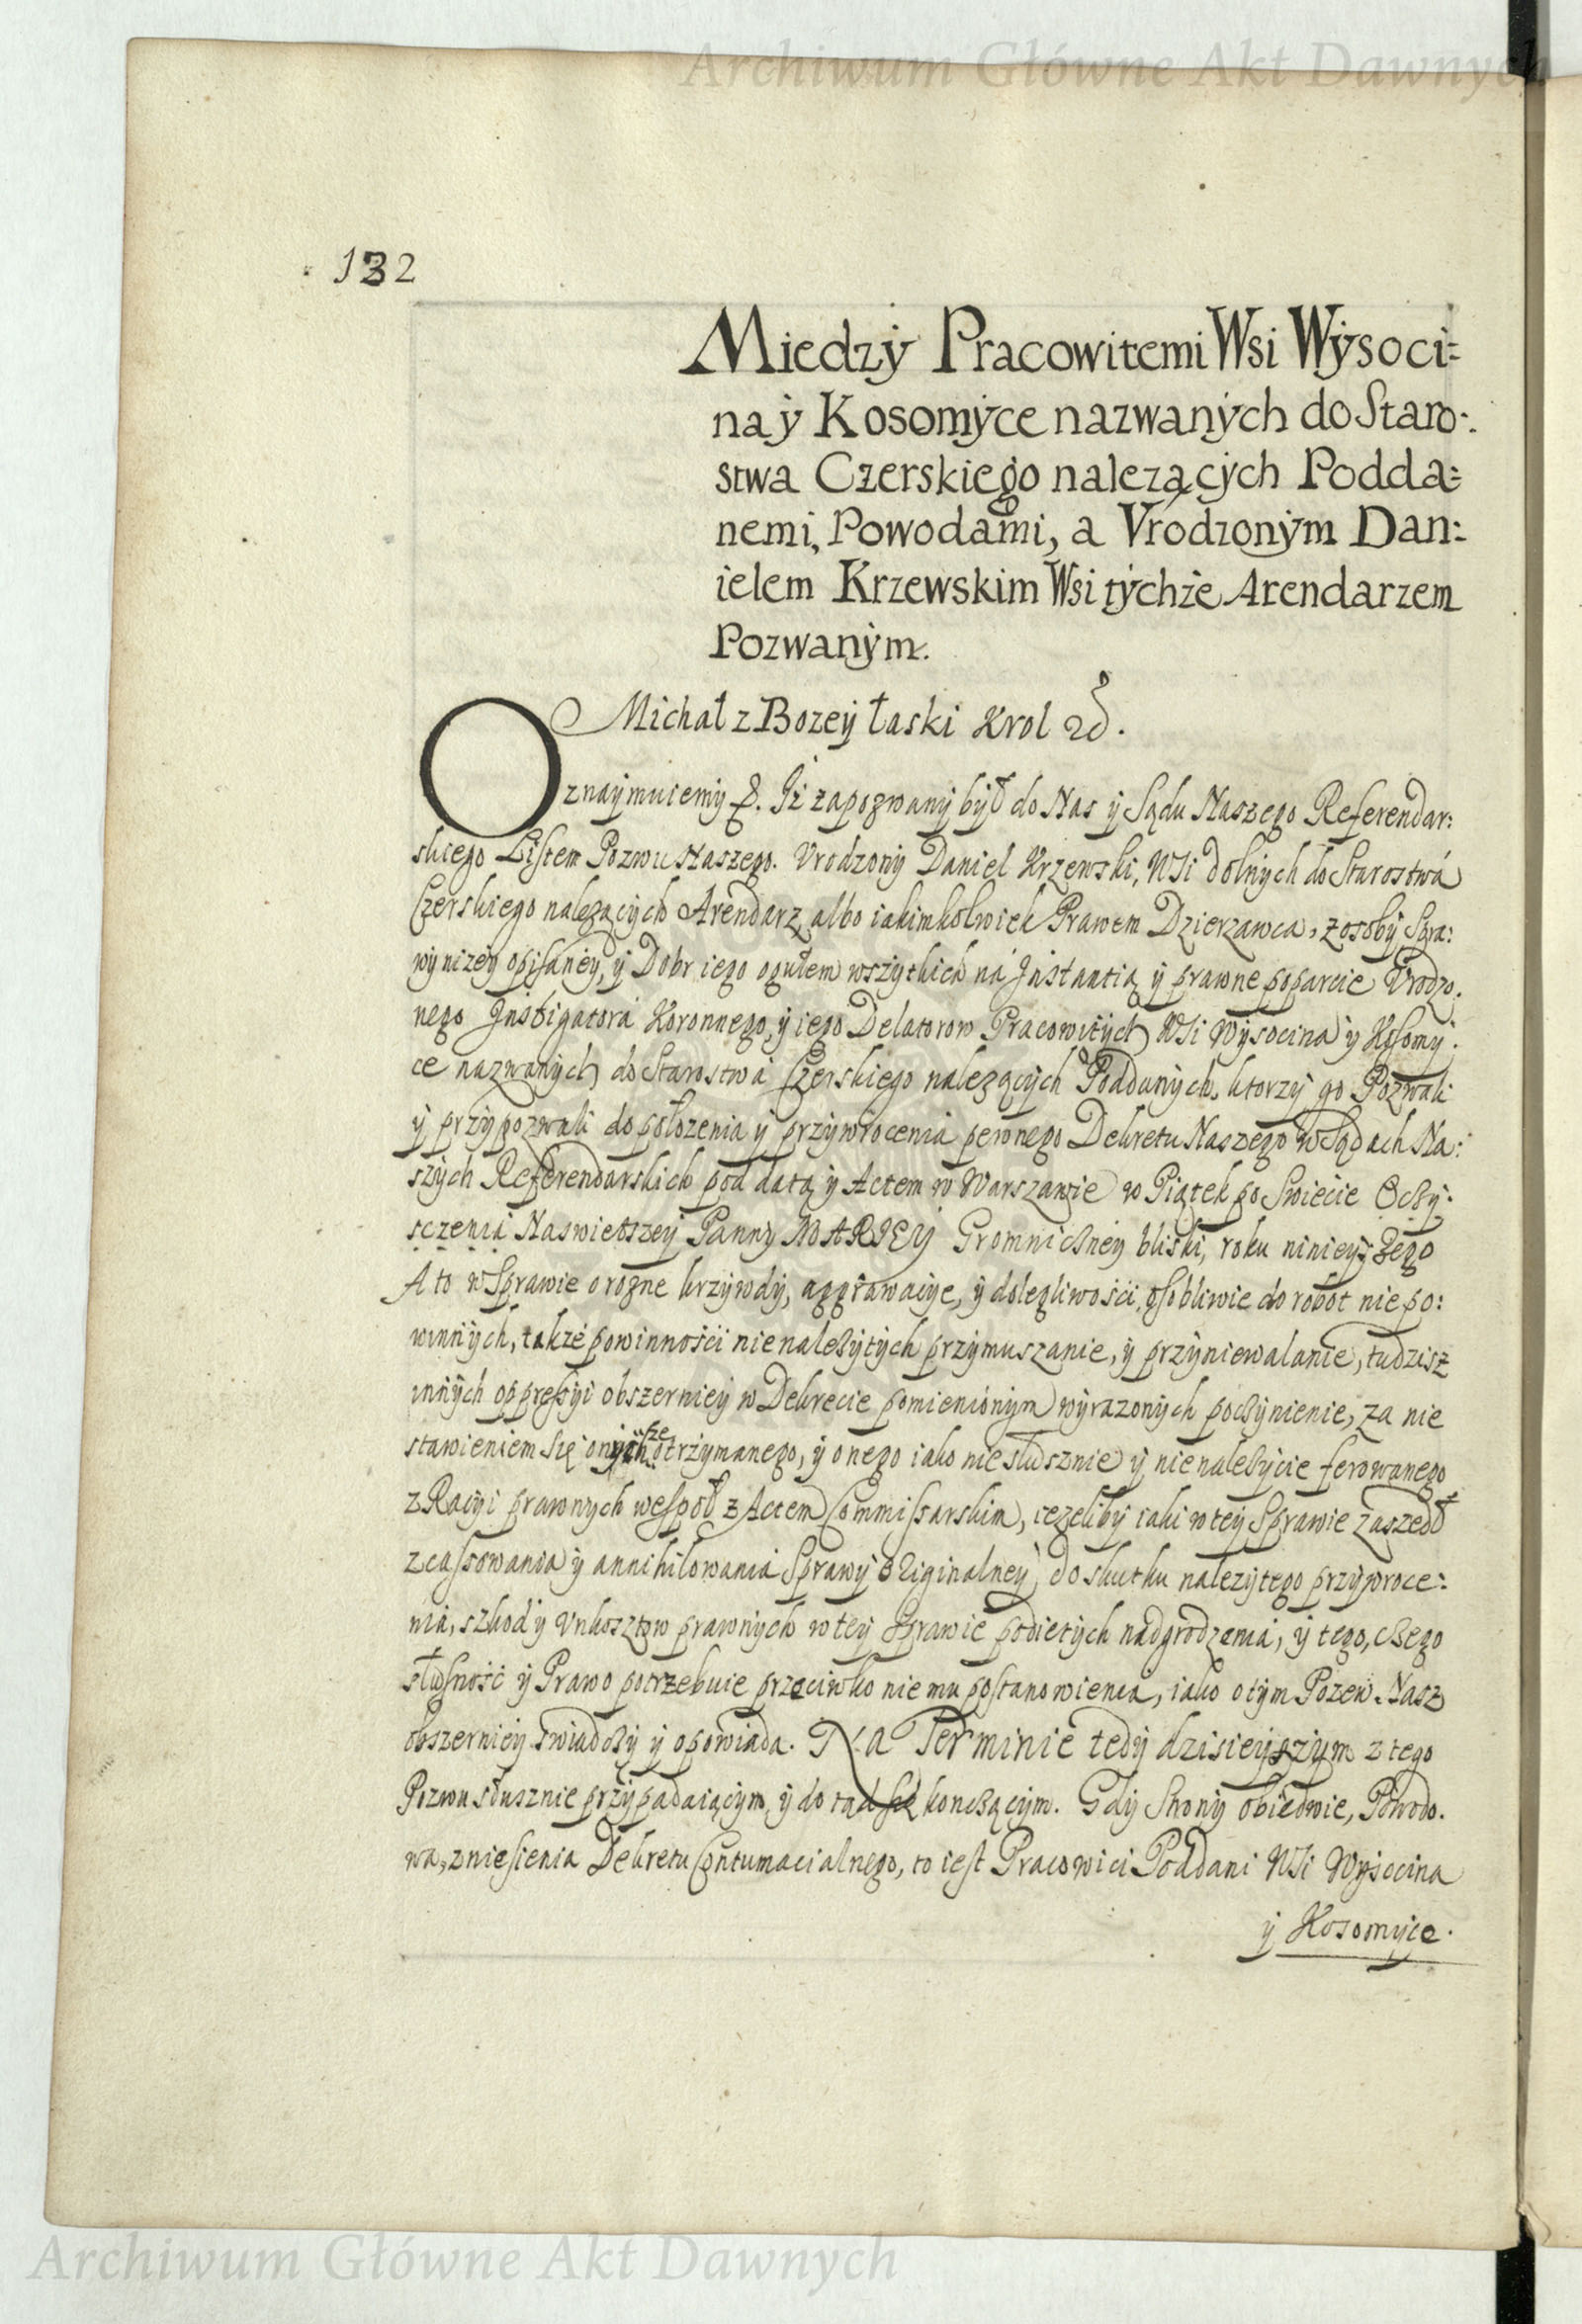 Archiwum Główne Akt Dawnych
132
Miedzÿ Pracowitemi Wsi Wÿsoci=
na ÿ Kosomÿce nazwanÿch do Staro-
stwa Czerskiego nalezącÿch Podda=
nemi, Powodami, a Vrodzonÿm Dan=
ielem Krzewskim Wsi tÿchże Arendarzem
Pozwanÿm.
Michał z Bozeÿ łaski Krol
Oznaÿmuiemÿ Iż zapozwanÿ bÿł do Nas ÿ Sądu Naszego Referendar:
skiego Listem Pozwu Naszego. Vrodzonÿ Daniel Krzewski, Wsi dolnÿch do Starostwá
Czerskiego nalezącÿch Arendarz albo iakimkolwiek Prawem Dzierzawca, z osobÿ Spra:
wÿ nizeÿ opisáneÿ, ÿ Dobr iego ogułem wszÿtkich ná Instantią ÿ prawne poparcie Vrodzo.
nego Instigatorá Koronnego, ÿ iego Delatorow Pracowitÿch Wsi Wÿsocina ÿ Kosomÿ.
ce nazwanÿch do Starostwá Czerskiego nalezącÿch Poddanÿch, ktorzÿ go Pozwali
ÿ przÿpozwali do połozenia ÿ przÿwrocenia pewnego Dekretu Naszego w Sądach Na:
szÿch Referendarskich pod datą ÿ Actem w Warszawie w Piątek po Swiecie Oczÿ.
sczeniá Naswietszeÿ Pannÿ MARIEÿ Gromniczneÿ bliski, roku ninieÿszego
A to w Sprawie o rozne krzÿwdÿ, aggrawacÿe, ÿ dolegliwości, osobliwie do robot nie po:
winnÿch, także powinności nienalezÿtÿch przÿmuszanie, ÿ przÿniewalanie, tudzisz
innÿch oppressÿi obszernieÿ w Dekrecie pomienionÿm wÿrazonÿch poczÿnienie, za nie
stawieniem się onÿchże otrzÿmanego, ÿ onego iako niesłusznie ÿ nienalezÿcie ferowanego
z Racÿi prawnÿch wespoł z Actem Commissarskim, iezelibÿ iaki w teÿ Sprawie zaszedł
zcassowania ÿ annihilowaniá Sprawÿ Originalneÿ do skutku nalezÿtego przÿwroce:
nia, szkod ÿ vnkosztow prawnÿch w teÿ Sprawie podietÿch nadgrodzenia, ÿ tego, czego
słusność ÿ Prawo potrzebuie przeciwko niemu postanowienia, iako o tÿm Pozew Nasz
obszernieÿ swiadczÿ ÿ opowiada. Na Terminie tedÿ dzisieÿszÿm z tego
Pozwu słusznie przÿpadaiącÿm, ÿ do tąd się konczącÿm. Gdÿ Stronÿ obiedwie, Powodo.
wa, zniesienia Dekretu Contumacialnego, to iest Pracowici Poddani Wsi Wÿsocina
ÿ Kosomÿce.
Archiwum Główne Akt Dawnych